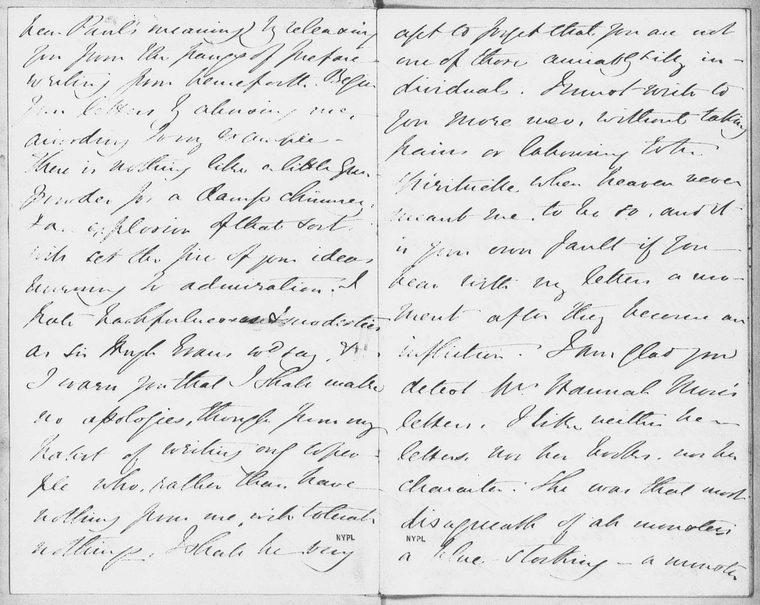 dear Paul's meaning) by releasing
you from the pangs of preface-
writing from henceforth. Begin
your letters by abusing me,
according to my example—
there is nothing like a little gun
powder for a damp chimney,
& an explosion of that sort
will set the fire of your ideas
burning to admiration. I
hate bashfulnesses & modesties
as Sir Hugh Evans wd say, &
I warn you that I shall make
no apologies, though from my
habit of writing only to peo-
ple who, rather than have
nothing from me, will tolerate
nothings, I shall be very
NYPL
apt to forget that you are not
one of those amiably silly in-
dividuals. I must write to
you more meo, without taking
pains or labouring to be
spirituelle when heaven never
meant me to be so, and it
is your own fault if you
bear with my letters a mo-
ment after they become an
infliction. I am glad you
detest Mrs Hannah More's
letters. I like neither her
letters, nor her books, nor her
character. She was that most
disagreeable of all monsters
a blue-stocking—a monster
NYPL